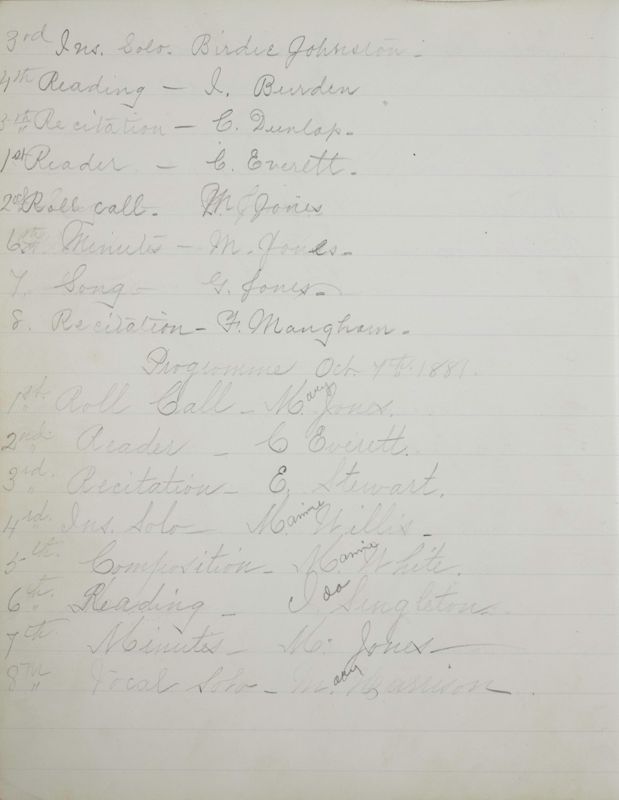 3rd Ins. Solo. Birdie Johnston.
4th Reading - I. Burden
5th Recitation - C. Dunlap.
1st Reader - C. Everett.
2nd Roll call. M Jones
6th Minutes - M. Jones.
7. Song - G. Jones.
8. Recitation - F. Mangham.
Programme Oct. 7th. 1881.
1st. Roll Call - Mary Jones.
2nd. Reader - C Everett.
3rd. Recitation - E. Stewart.
4rd. Ins. Solo - Mamie Willis.
5th. Composition - Mamie White.
6th. Reading - Ida Singleton.
7th Minutes - M. Jones -
8th Vocal Solo - Mary Harrison.